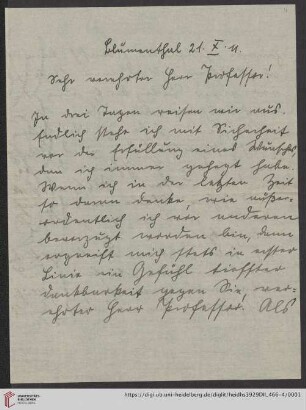 Blumenthal 21. X. 11.
Sehr verehrter Herr Professor!
In drei Tagen reisen wir aus.
Endlich stehe ich mit Sicherheit
vor der Erfüllung eines Wunsches
den ich immer gehegt habe.
Wenn ich in der letzten Zeit
so daran denke, wie außer-
ordentlich ich vor anderen
bevorzugt worden bin, dann
ergreift mich stets in erster
Linie ein Gefühl tiefster
Dankbarkeit gegen Sie, ver-
ehrter Herr Professor. Als
UNIVERSITÄTS-
BIBLIOTHEK
HEIDELBERG
https://digi.ub.uni-heidelberg.de/diglit/heidhs3929DII_466-4/0001